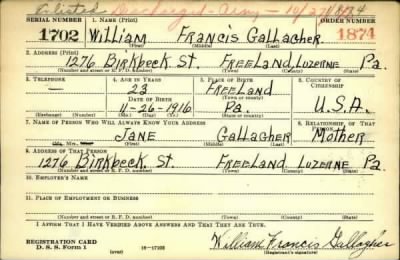 Enlisted Discharged - Army - 10/27/
SERIAL NUMBER 1. NAME (Print) ORDER NUMBER
1702 William Francis Gallagher. 1874
(First) (Middle) (Last)
2. ADDRESS (Print)
1276 Birkbeck St. Freeland, Luzerne Pa.
(Number and street or R. F. D. number) (Town) (County) (State)
3. TELEPHONE 4. AGE IN YEARS 5. PLACE OF BIRTH 6. COUNTRY OF CITIZENSHIP
— 23 Freeland
DATE OF BIRTH (Town or county)
11-26-1916 Pa. U.S.A.
(Exchange) (Number) (Mo.) (Day) (Yr.) (State or country)
7. NAME OF PERSON WHO WILL ALWAYS KNOW YOUR ADDRESS 8. RELATIONSHIP OF THAT PERSON
Jane Gallagher Mother
(Mr., Mrs., Miss) (First) (Middle) (Last)
9. ADDRESS OF THAT PERSON
1276 Birkbeck St. Freeland Luzerne Pa
(Number and street or R. F. D. number) (Town) (County) (State)
10. EMPLOYER'S NAME
11. PLACE OF EMPLOYMENT OR BUSINESS
(Number and street or R. F. D. number) (Town) (County) (State)
I AFFIRM THAT I HAVE VERIFIED ABOVE ANSWERS AND THAT THEY ARE TRUE.
REGISTRATION CARD
D. S. S. Form 1 (over) 16—17105 William Francis Gallagher
(Registrant's signature)